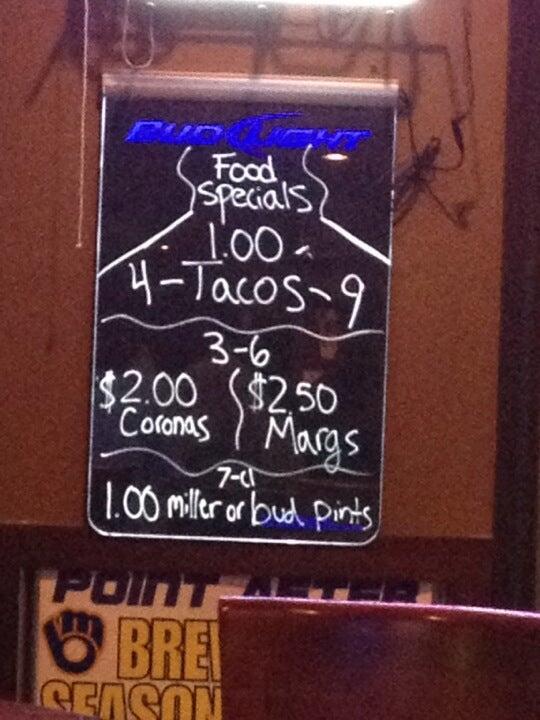 BUD LIGHT
Food
Specials
1.00
4-Tacos-9
3-6
$2.00 $2.50
Coronas Margs
7-cl
1.00 miller or bud pints
POINT AFTER
BRE
SEASON